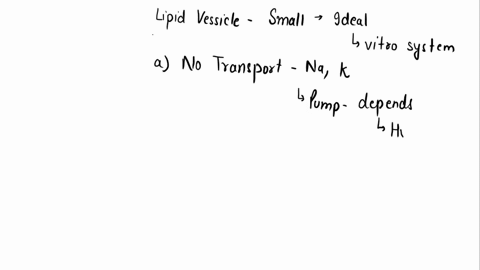 Lipid Vessicle - Small → Ideal
↳ vitro system
a) No Transport - Na, K
↳ Pump - depends
↳ Hy